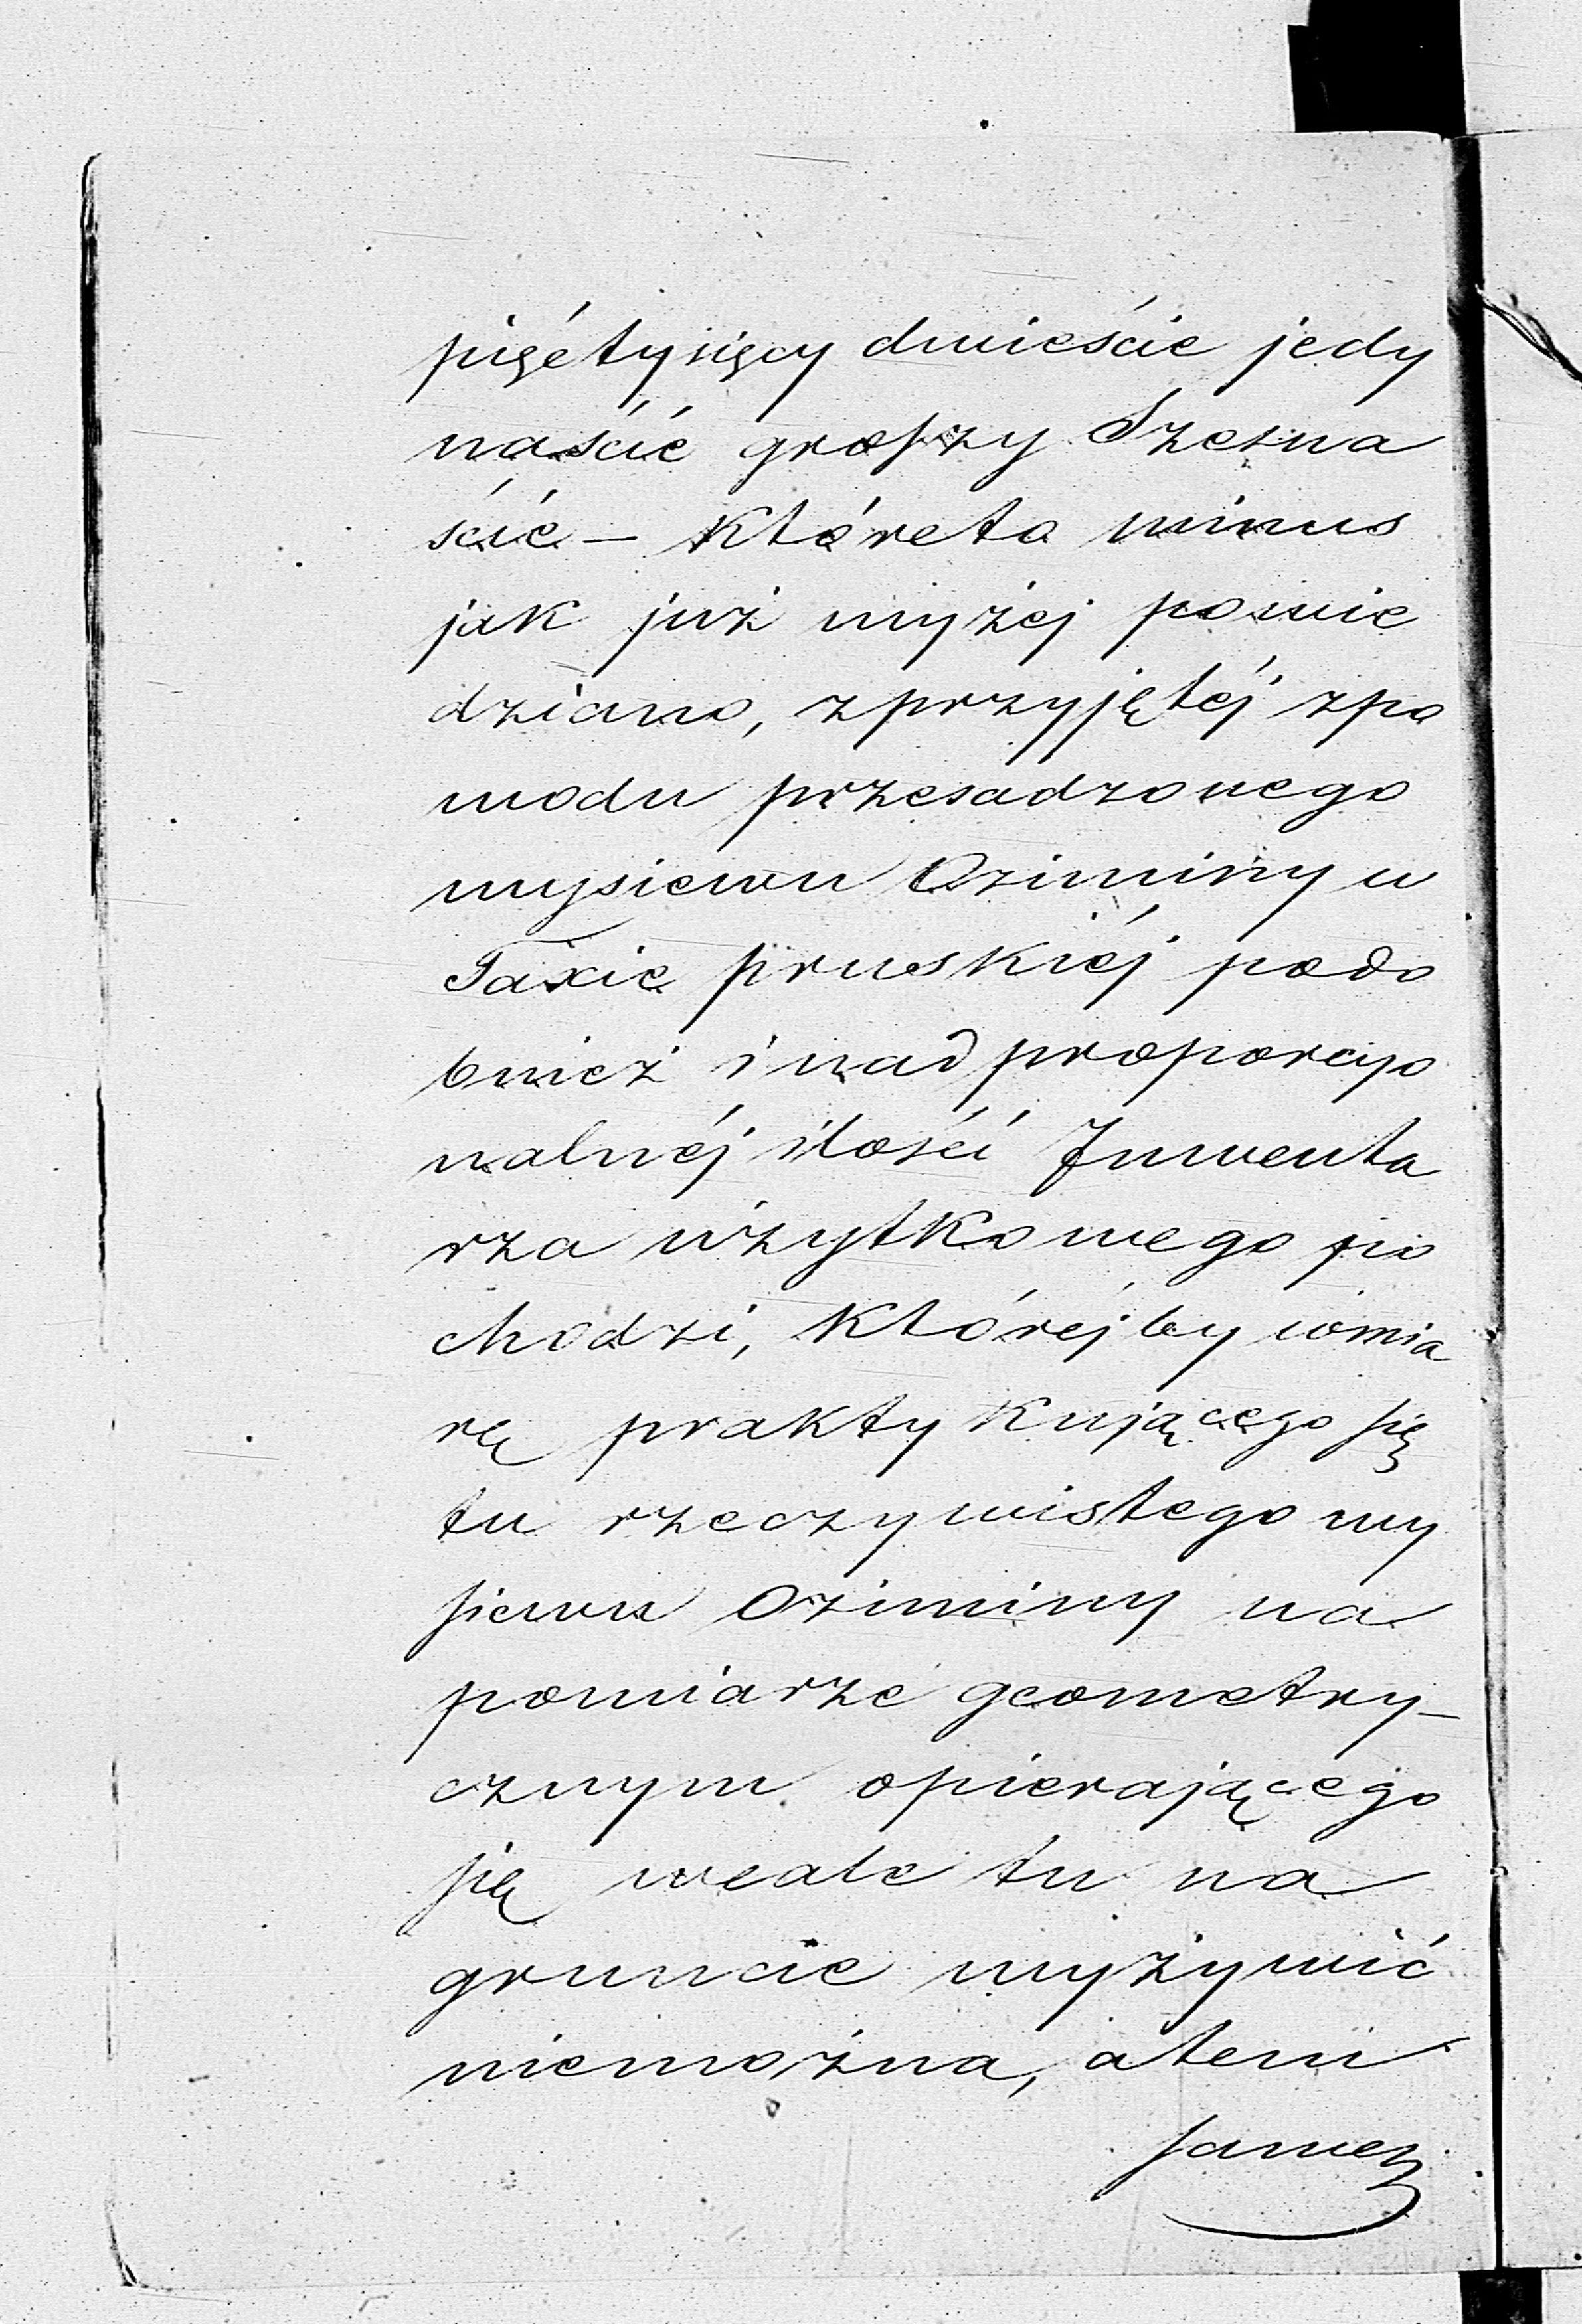 pięćtysięcy dwieście jedy
naście groszy Szesna
ście – któreto minus
jak już wyżej powie
dziano, zprzyjętéj zpo
wodu przesadzonego
wysiewu Oziminy w
Taxie pruskiéj podo
bnież i nad proporcyo
nalnéj ilości Inwenta
rza użytkowego po
chodzi, któréjby wmia
rę praktykującego się
tu rzeczywistego wy
siewu Oziminy na
pomiarze geometry-
cznym opierającego
się wcale tu na
gruncie wyżywić
niemożna, atem
samem